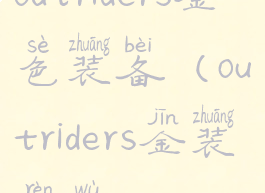 outriders金
sè zhuāng bèi
色装备(ou
jīn zhuāng
triders金装
rèn wù